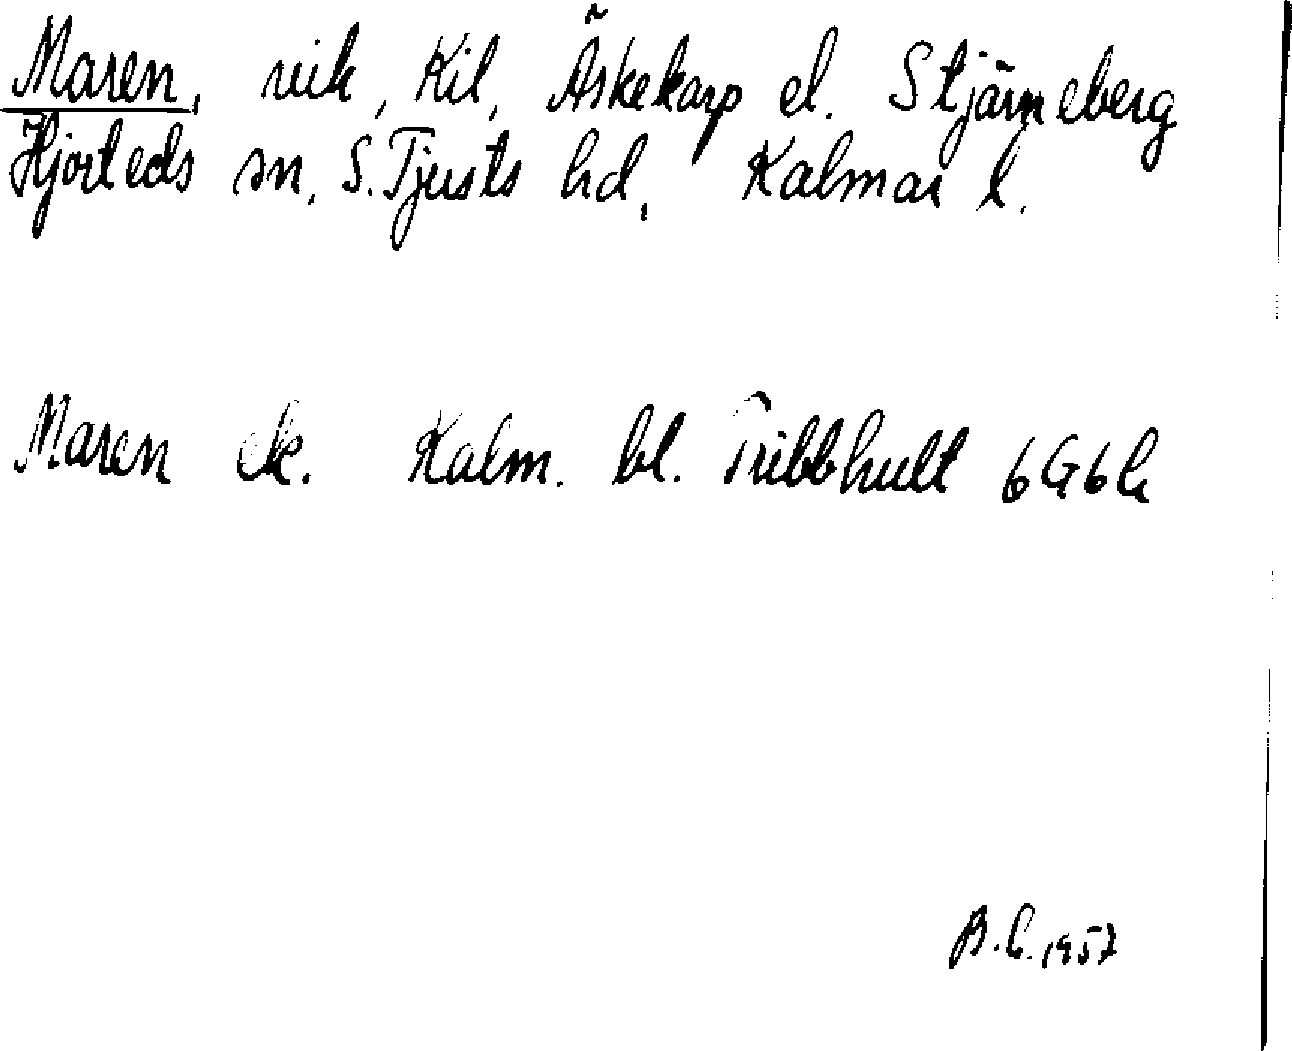 Maren, vik, Kil, Äskekarp el. Stjärneberg
Hjorteds sn, S. Tjusts hd, Kalmar l.
Maren ek. Kalm. bl. Tribbhult 6G6h
B.C. 1957